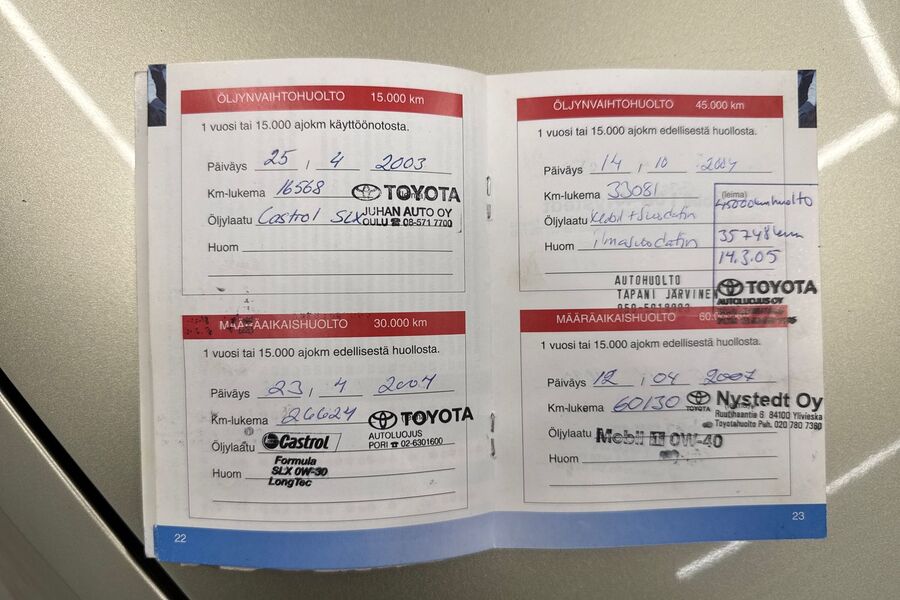 ÖLJYNVAIHTOHUOLTO 15.000 km
1 vuosi tai 15.000 ajokm käyttöönotosta.
Päiväys 25 , 4 2003
Km-lukema 16568
TOYOTA
Öljylaatu Castrol SLX
JUHAN AUTO OY
OULU ☎ 08-571 7700
Huom
MÄÄRÄAIKAISHUOLTO 30.000 km
1 vuosi tai 15.000 ajokm edellisestä huollosta.
Päiväys 23 , 4 2004
Km-lukema 26624
TOYOTA
AUTOLUOJUS
PORI ☎ 02-6301600
Öljylaatu Castrol
Formula
SLX 0W-30
LongTec
Huom
22
ÖLJYNVAIHTOHUOLTO 45.000 km
1 vuosi tai 15.000 ajokm edellisestä huollosta.
Päiväys 14 , 10 2004
Km-lukema 33081
(leima)
45000km huolto
Öljylaatu Mobil + Suodatin
35748km
Huom ilmasuodatin
14.3.05
AUTOHUOLTO
TAPANI JÄRVINEN
TOYOTA
AUTOLUOJUS OY
MÄÄRÄAIKAISHUOLTO
1 vuosi tai 15.000 ajokm edellisestä huollosta.
Päiväys 12 , 04 2007
Km-lukema 60130
TOYOTA
Nystedt Oy
Ruutihaantie 6 84100 Ylivieska
Toyotahuolto Puh. 020 780 7360
Öljylaatu Mobil 1 0W-40
Huom
23